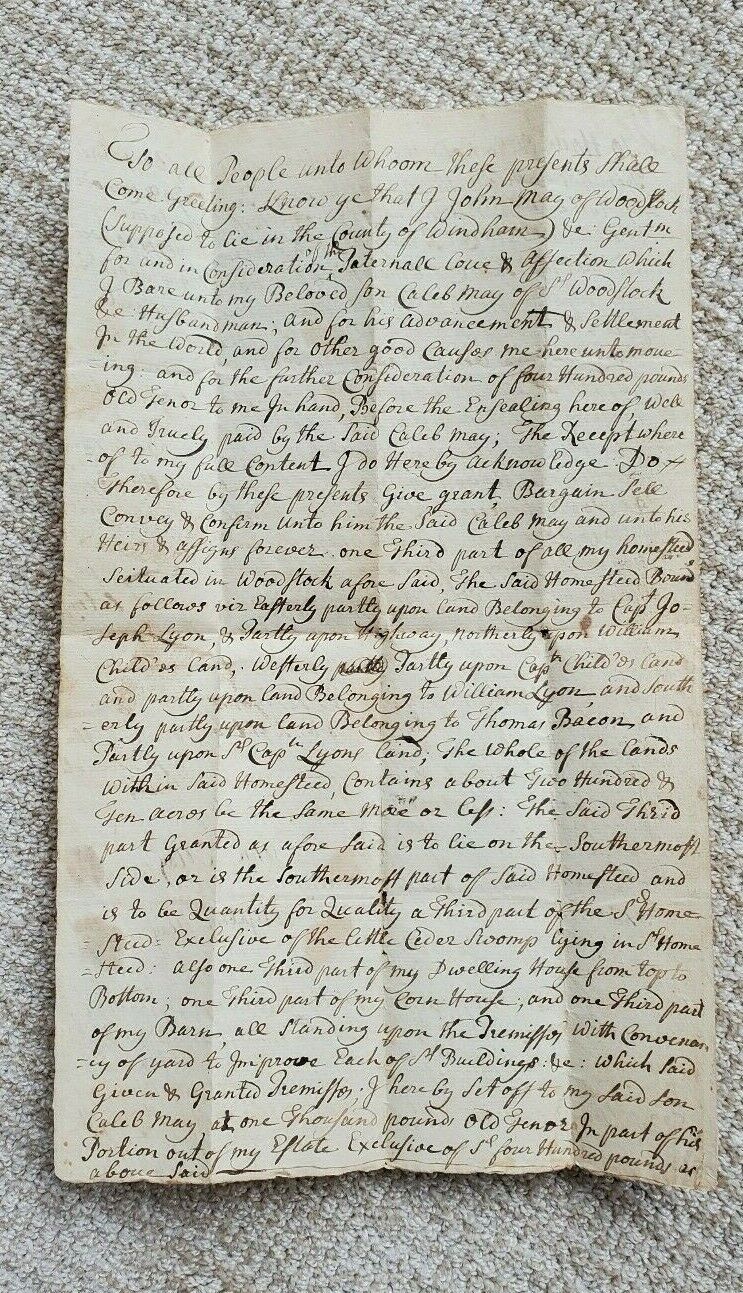 To all People unto Whoom these presents Shall
Come Greeting: Know ye that I John May of Woodstock
(Supposed to lie in the County of Windham) &c: Gentm
for and in Consideration of the Paternall Love & Affection which
I Bare unto my Beloved son Caleb May of Sd Woodstock
&c Husbandman; and for his Advancement & Settlement
In the World, and for other good Causes me here unto move=
=ing: and for the further Consideration of four Hundred pounds
Old Tenor to me In hand, Before the Ensealing here of, well
and Truely paid by the Said Caleb May; The Recept where
=of to my full Content I do Hereby acknowledge: Do
Therefore by these presents Give grant, Bargain Sell
Convey & Confirm unto him the Said Caleb May and unto his
Heirs & assigns forever one Third part of all my homesteed
Seituated in Woodstock afore Said, The Said Homesteed Bound
as follows viz Easterly partly upon land Belonging to Capt Jo=
=seph Lyon, & Partly upon Highway, northerly upon William
Child'es Land, Westerly Partly upon Captn Child'es land
and partly upon Land Belonging to William Lyon, and South
=erly partly upon Land Belonging to Thomas Bacon, and
Partly upon Sd Captn Lyons land; The Whole of the Lands
within Said Homesteed, Contains about Two Hundred &
Ten acres be the Same more or less: The Said Third
part Granted as afore Said is to lie on the Southermost
Side, or is the Southermost part of Said Homesteed and
is to be Quantity for Quality a Third part of the Sd Home=
=steed: Exclusive of the little Ceder Swomp lying in Sd Home
=steed: also one Third part of my Dwelling House from top to
Bottom; one Third part of my Corn House, and one Third part
of my Barn, all Standing upon the Premisses with Convenan
=cy of yard to Improve Each of Sd Buildings: &c: which Said
Given & Granted Premisses; I here by Set off to my Said Son
Caleb May at one Thousand pounds Old Tenor In part of his
Portion out of my Estate Exclusive of Sd four Hundred pounds as
above Said